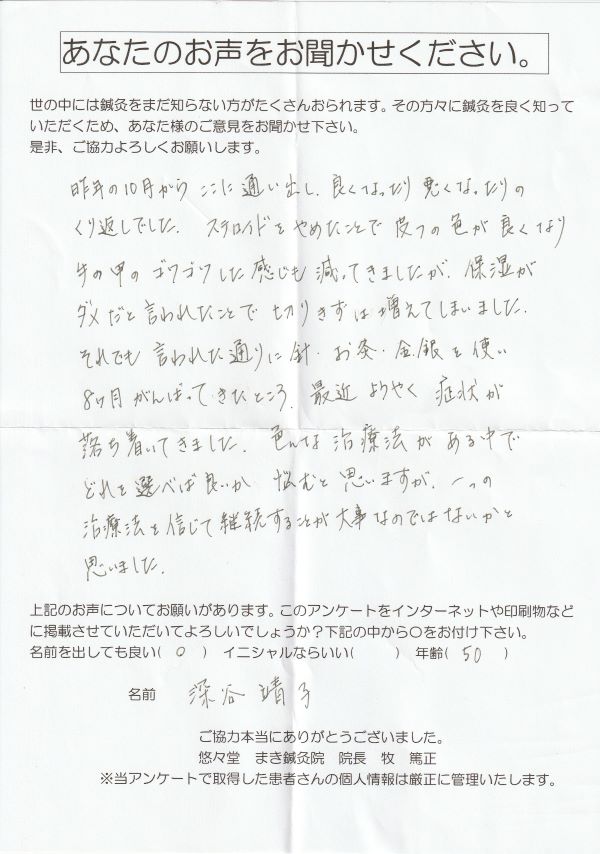 あなたのお声をお聞かせください。
世の中には鍼灸をまだ知らない方がたくさんおられます。その方々に鍼灸を良く知って
いただくため、あなた様のご意見をお聞かせ下さい。
是非、ご協力よろしくお願いします。
昨年の10月から ここに通い出し、良くなったり 悪くなったりの
くり返しでした。 ステロイドをやめたことで 皮フの色が良くなり
手の甲の ゴワゴワした感じも 減ってきましたが、保湿が
ダメだと言われたことで 切りきずは 増えてしまいました。
それでも 言われた通りに 針・お灸・金銀を使い
8ヶ月 がんばってきたところ、最近 ようやく 症状が
落ち着いてきました。 色んな治療法がある中で
どれを選べば良いか 悩むと思いますが、一つの
治療法を信じて継続することが大事なのではないかと
思いました。
上記のお声についてお願いがあります。このアンケートをインターネットや印刷物など
に掲載させていただいてよろしいでしょうか?下記の中から○をお付け下さい。
名前を出しても良い( ○ ) イニシャルならいい( ) 年齢( 50 )
名前 深谷 靖子
ご協力本当にありがとうございました。
悠々堂 まき鍼灸院 院長 牧 篤正
※当アンケートで取得した患者さんの個人情報は厳正に管理いたします。